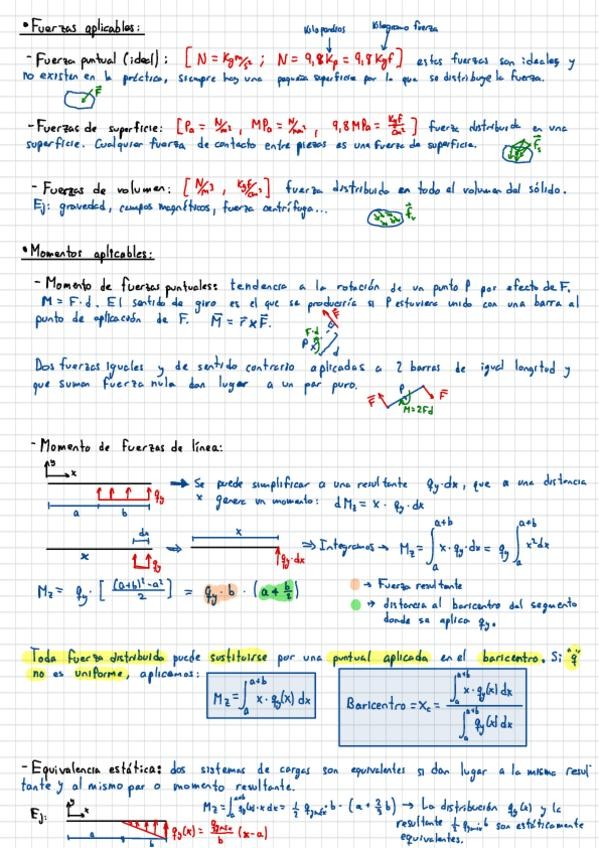 • Fuerzas aplicables:
Kilopondios
Kilogramo fuerza
- Fuerza puntual (ideal): [N = Kg m/s² ; N = 9,8 Kp = 9,8 Kgf] estas fuerzas son ideales y
no existen en la práctica, siempre hay una pequeña superficie por la que se distribuye la fuerza.
F
- Fuerzas de superficie: [Pa = N/m² , MPa = N/mm² , 9,8 MPa = Kgf/cm²] fuerza distribuida en una
superficie. Cualquier fuerza de contacto entre piezas es una fuerza de superficie.
- Fuerzas de volumen: [N/m³ , Kgf/cm³] fuerza distribuida en todo el volumen del sólido.
Ej: gravedad, campos magnéticos, fuerza centrífuga...
• Momentos aplicables:
- Momento de fuerzas puntuales: tendencia a la rotación de un punto P por efecto de F.
M = F · d. El sentido de giro es el que se produciría si P estuviera unido con una barra al
punto de aplicación de F. M = r x F.
F·d
P
d
Dos fuerzas iguales y de sentido contrario aplicadas a 2 barras de igual longitud y
que suman fuerza nula dan lugar a un par puro.
F P F
M=2Fd
- Momento de fuerzas de línea:
y
x
qy
a b
→ Se puede simplificar a una resultante qy·dx, que a una distancia
x genera un momento: dMz = x · qy · dx
dx
x
qy
x
qy·dx
⇒ Integramos → Mz = ∫ₐᵃ⁺ᵇ x·qy·dx = qy ∫ₐᵃ⁺ᵇ x²dx
Mz = qy · [ ((a+b)² - a²)/2 ] = qy · b · (a + b/2)
→ Fuerza resultante
→ distancia al baricentro del segmento
donde se aplica qy.
Toda fuerza distribuida puede sustituirse por una puntual aplicada en el baricentro. Si "q"
no es uniforme, aplicamos:
Mz = ∫ₐᵃ⁺ᵇ x · qy(x) dx
Baricentro = Xc = ∫ₐᵃ⁺ᵇ x · qy(x) dx / ∫ₐᵃ⁺ᵇ qy(x) dx
- Equivalencia estática: dos sistemas de cargas son equivalentes si dan lugar a la misma resul
tante y al mismo par o momento resultante.
Ej:
x
a
qy(x) = qymáx/b (x-a)
Mz = ∫ₐᵃ⁺ᵇ qy(x)·x dx = ½ qymáx · b · (a + ⅔ b) → La distribución qy(x) y la
resultante ½ qymáx·b son estáticamente
equivalentes.